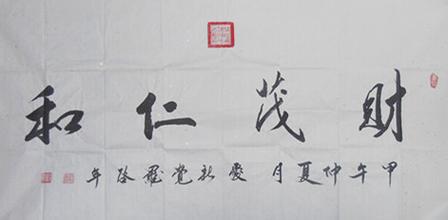 財茂仁和
甲午仲夏月愛新覺羅啓年